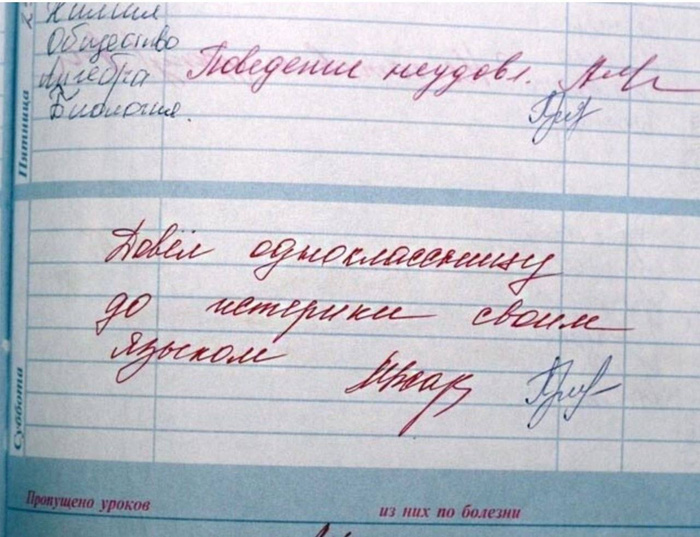 Химия
Общество
Алгебра Поведение неудовл.
Биология.
Пятница
Довёл одноклассницу
до истерики своим
языком
Суббота
Пропущено уроков из них по болезни